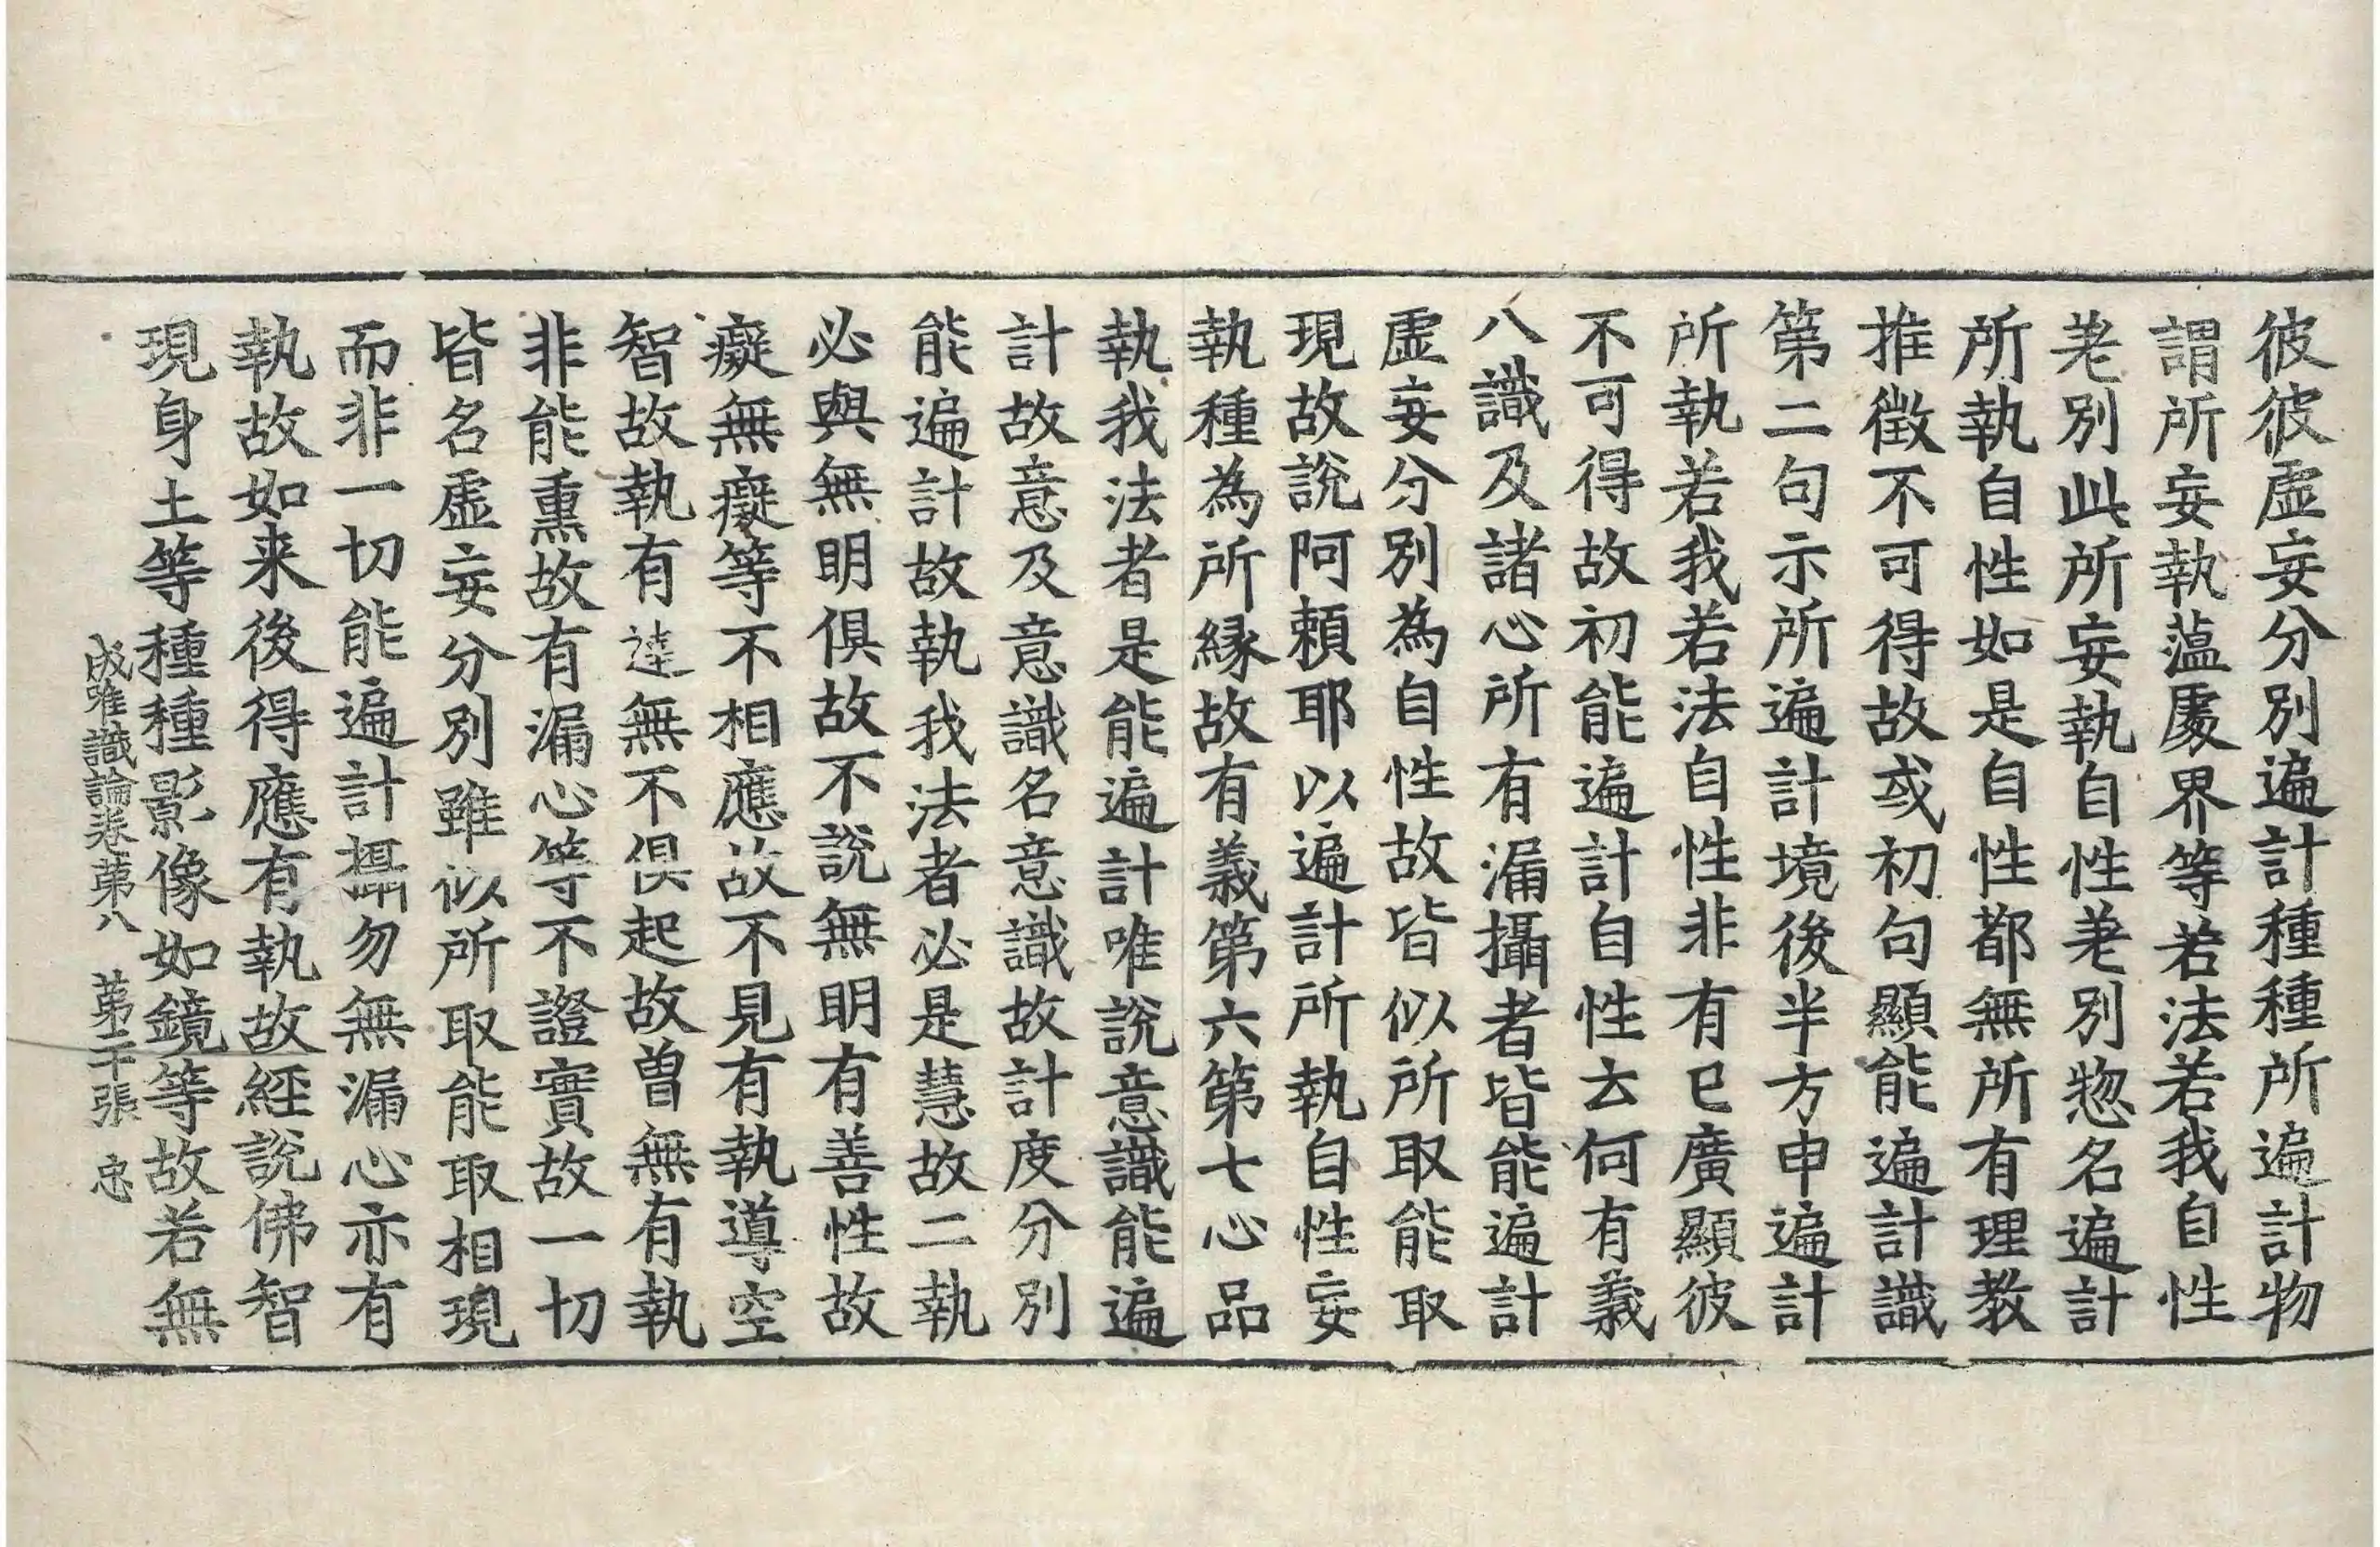 彼彼虛妄分別遍計種種所遍計物
謂所妄執蘊處界等若法若我自性
差別此所妄執自性差別惣名遍計
所執自性如是自性都無所有理教
推徵不可得故或初句顯能遍計識
第二句示所遍計境後半方申遍計
所執若我若法自性非有已廣顯彼
不可得故初能遍計自性云何有義
八識及諸心所有漏攝者皆能遍計
虛妄分別為自性故皆似所取能取
現故說阿賴耶以遍計所執自性妄
執種為所緣故有義第六第七心品
執我法者是能遍計唯說意識能遍
計故意及意識名意識故計度分別
能遍計故執我法者必是慧故二執
必與無明俱故不說無明有善性故
癡無癡等不相應故不見有執導空
智故執有達無不俱起故曾無有執
非能熏故有漏心等不證實故一切
皆名虛妄分別雖似所取能取相現
而非一切能遍計攝勿無漏心亦有
執故如来後得應有執故經說佛智
現身土等種種影像如鏡等故若無
成唯識論卷第八　第二十張　忠